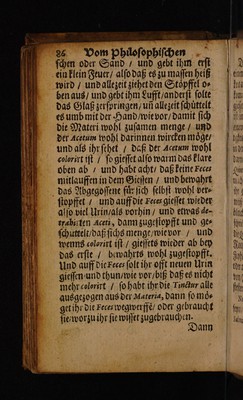 86 Vom Philosophischen
schen oder Sand / und gebt ihm erst
ein klein Feuer / also daß es zu massen heiß
wird / und allezeit ziehet den Stöpffel o-
ben aus / und gebt ihm Lufft / anderst solte
das Glaß zerspringen / uñ allezeit schüttelt
es umb mit der Hand / wie vor / damit sich
die Materi wohl zusamen menge / und
der Acetum wohl darinnen wircken möge /
und als ihr sehet / daß der Acetum wohl
colorirt ist / so giesset also warm das klare
oben ab / und habt acht / daß keine Feces
mitlauffen in dem Giessen / und bewahrt
das Abgegossene für sich selbst wohl ver-
stopffet / und auff die Feces giesset wieder
also viel Urin / als vorhin / und etwas de-
ten Aceti, dann zugestopfft und ge-
schüttelt / daß sichs menge / wie vor / und
wenns colorirt ist / giessets wieder ab bey
das erste / bewahrts wohl zugestopfft.
Und auff die Feces solt ihr offt neuen Urin
giessen und thun / wie vor / biß daß es nicht
mehr colorirt / so habt ihr die Tinctur alle
ausgezogen aus der Materia, dann so mö-
get ihr die Feces wegwerffē / oder gebraucht
sie / worzu ihr sie wisset zugebrauchen.
Dann